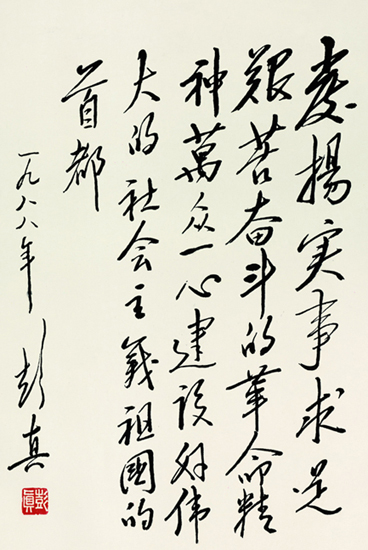 发揚实事求是
艰苦奋斗的革命精
神萬众一心建设好伟
大的社会主義祖國的
首都
一九八八年
彭真
彭真